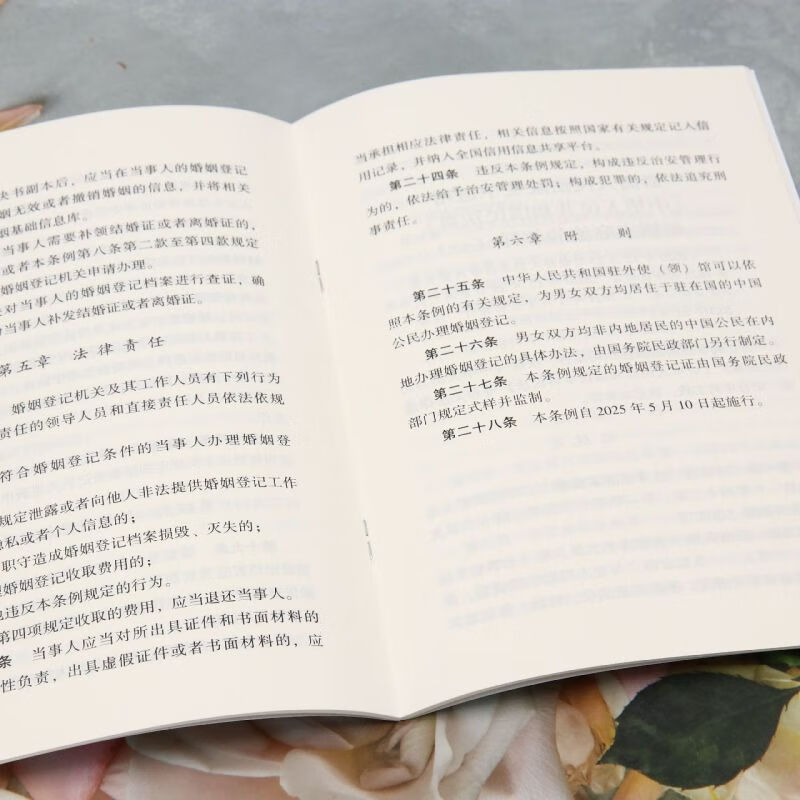 决书副本后，应当在当事人的婚姻登记
姻无效或者撤销婚姻的信息，并将相关
姻基础信息库。
当事人需要补领结婚证或者离婚证的，
或者本条例第八条第二款至第四款规定
婚姻登记机关申请办理。
对当事人的婚姻登记档案进行查证，确
当事人补发结婚证或者离婚证。
第五章 法律责任
婚姻登记机关及其工作人员有下列行为
责任的领导人员和直接责任人员依法依规
符合婚姻登记条件的当事人办理婚姻登
规定泄露或者向他人非法提供婚姻登记工作
隐私或者个人信息的；
职守造成婚姻登记档案损毁、灭失的；
婚姻登记收取费用的；
他违反本条例规定的行为。
第四项规定收取的费用，应当退还当事人。
条 当事人应当对所出具证件和书面材料的
性负责，出具虚假证件或者书面材料的，应
当承担相应法律责任，相关信息按照国家有关规定记入信
用记录，并纳入全国信用信息共享平台。
第二十四条 违反本条例规定，构成违反治安管理行
为的，依法给予治安管理处罚；构成犯罪的，依法追究刑
事责任。
第六章 附则
第二十五条 中华人民共和国驻外使（领）馆可以依
照本条例的有关规定，为男女双方均居住于驻在国的中国
公民办理婚姻登记。
第二十六条 男女双方均非内地居民的中国公民在内
地办理婚姻登记的具体办法，由国务院民政部门另行制定。
第二十七条 本条例规定的婚姻登记证由国务院民政
部门规定式样并监制。
第二十八条 本条例自2025年5月10日起施行。